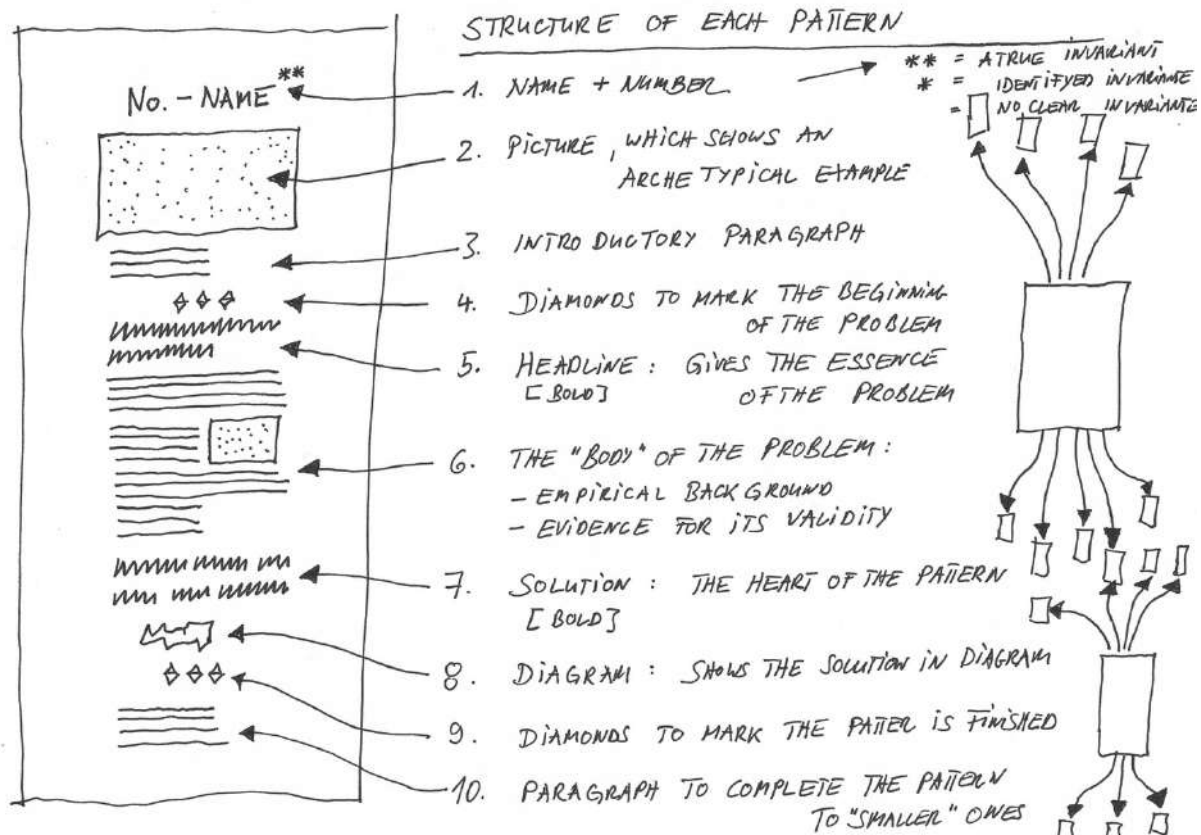 STRUCTURE OF EACH PATTERN
No. - NAME **
1. NAME + NUMBER
** = A TRUE INVARIANT
* = IDENTIFYED INVARIANTE
= NO CLEAR INVARIANTE
2. PICTURE, WHICH SCHOWS AN
ARCHETYPICAL EXAMPLE
3. INTRODUCTORY PARAGRAPH
4. DIAMONDS TO MARK THE BEGINNING
OF THE PROBLEM
5. HEADLINE : GIVES THE ESSENCE
[BOLD] OF THE PROBLEM
6. THE "BODY" OF THE PROBLEM :
- EMPIRICAL BACKGROUND
- EVIDENCE FOR ITS VALIDITY
7. SOLUTION : THE HEART OF THE PATTERN
[BOLD]
8. DIAGRAM : SHOWS THE SOLUTION IN DIAGRAM
9. DIAMONDS TO MARK THE PATTER IS FINISHED
10. PARAGRAPH TO COMPLETE THE PATTERN
TO "SMALLER" OWES